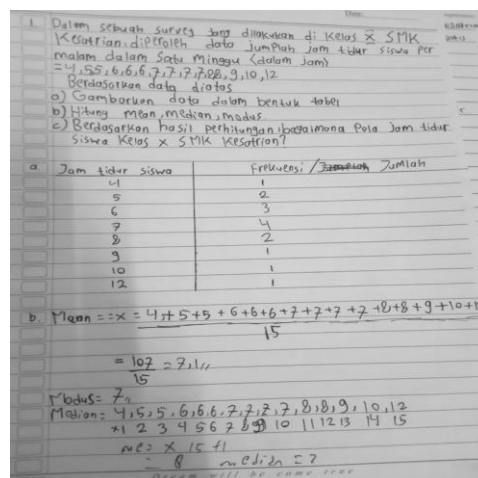 1. Dalam sebuah survey yang dilakukan di Kelas X SMK
Kesatrian, diperoleh data jumplah jam tidur siswa per
malam dalam Satu Minggu (dalam jam)
= 4,55,6,6,6,7,7,7,7,88,9,10,12
Berdasarkan data diatas
a) Gambarkan data dalam bentuk tabel
b) Hitung mean, median, modus.
c) Berdasarkan hasil perhitungan, bagaimana Pola Jam tidur
Siswa Kelas X SMK Kesatrian?
a. Jam tidur siswa Frekuensi / Jumlah
4 1
5 2
6 3
7 4
8 2
9 1
10 1
12 1
b. Mean = x = 4,+5+5+6+6+6+7+7+7+7+8+8+9+10+1
15
= 107 = 7,1,,
15
Modus = 7,,
Median: 4,5,5,6,6,6,7,7,7,7,8,8,9,10,12
1 2 3 4 5 6 7 8 9 10 11 12 13 14 15
me = x 15 +1
= 8 median = 7
Dream will be come true